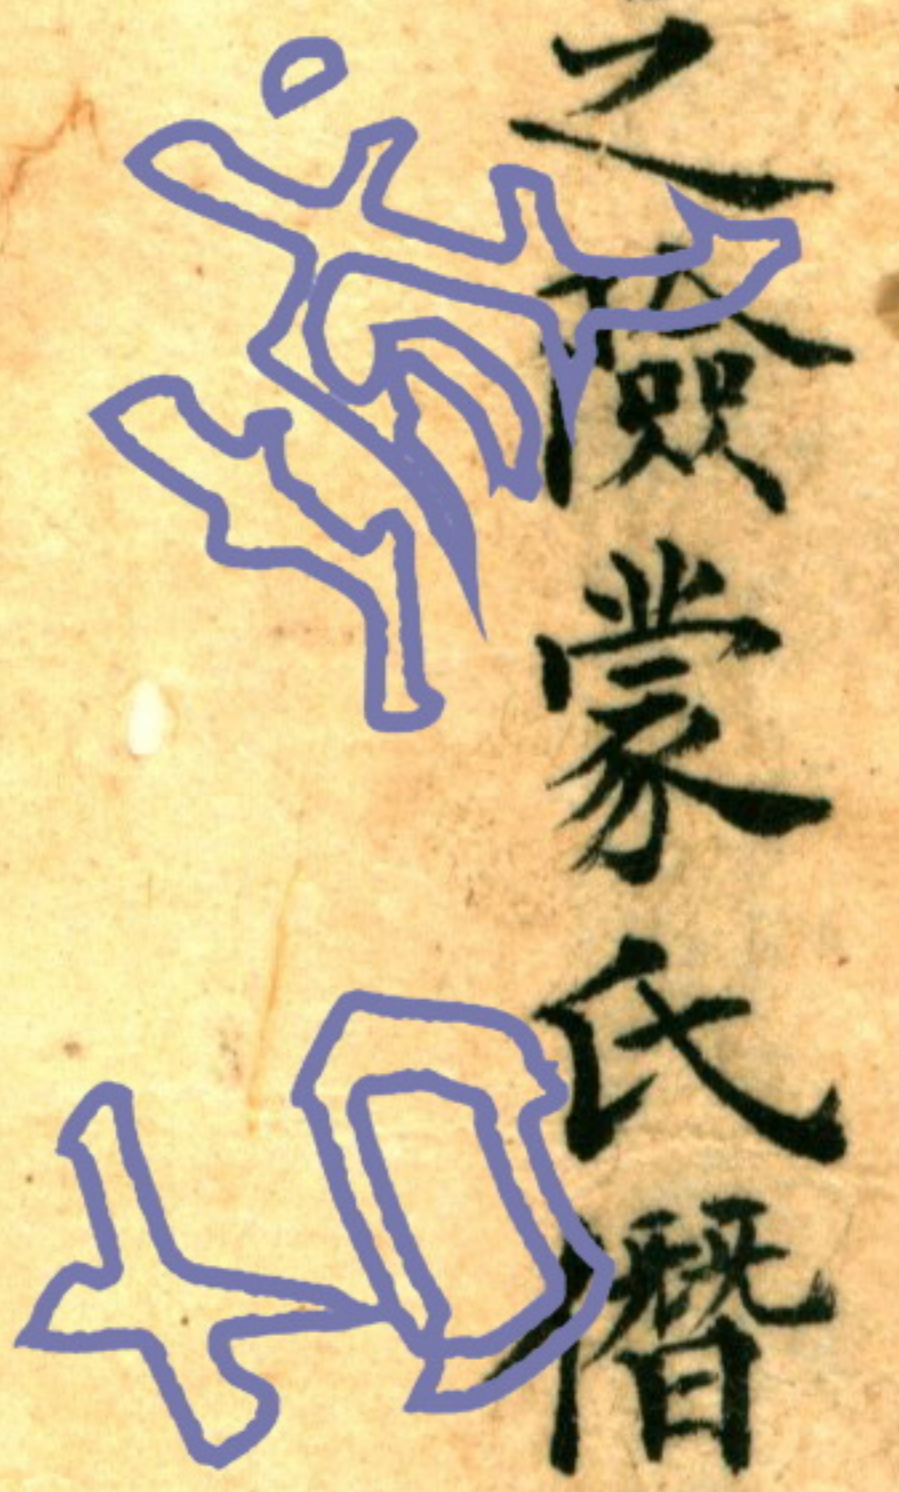 之險蒙氏僭